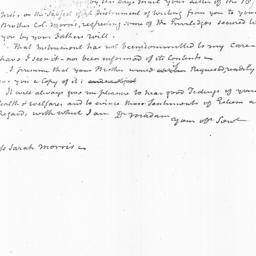 by the days Mail your Letter of the 10th
Inst. on the Subject of an Instrument of writing from you to your
Brother Col. Morris, respecting some of the Priviledges secured to
you by your Fathers Will.
That Instrument has not been committed to my Care
have I seen it - nor been informed of its Contents
I presume that your Mother would Request, readily
you a Copy of it
It will always give me pleasure to hear good Tidings of your
Health & welfare and to evince those Sentiments of Esteem and
Regard, with which I am Dr Madam
Your obt Servt
Sarah Morris